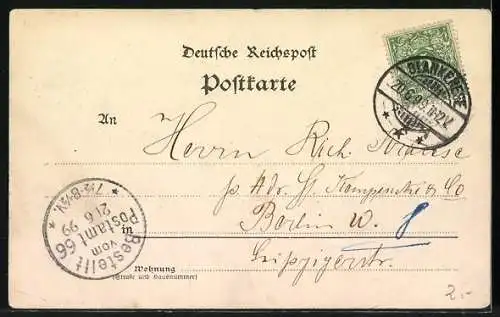 Deutsche Reichspost
Postkarte
BLANKENESE
20.6.99. 11-12V.
An
Herrn Rich. Krause
p Adr. St. Kempencke & Co
in Berlin W. 8
Leipzigerstr.
Wohnung
(Straße und Hausnummer)
7½-8½V.
21.6.99
Bestellt vom Postamt 66
2.-